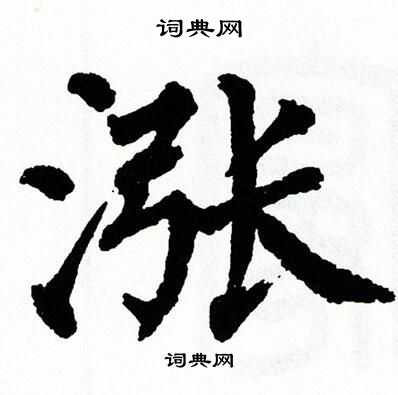 词典网
涨
词典网